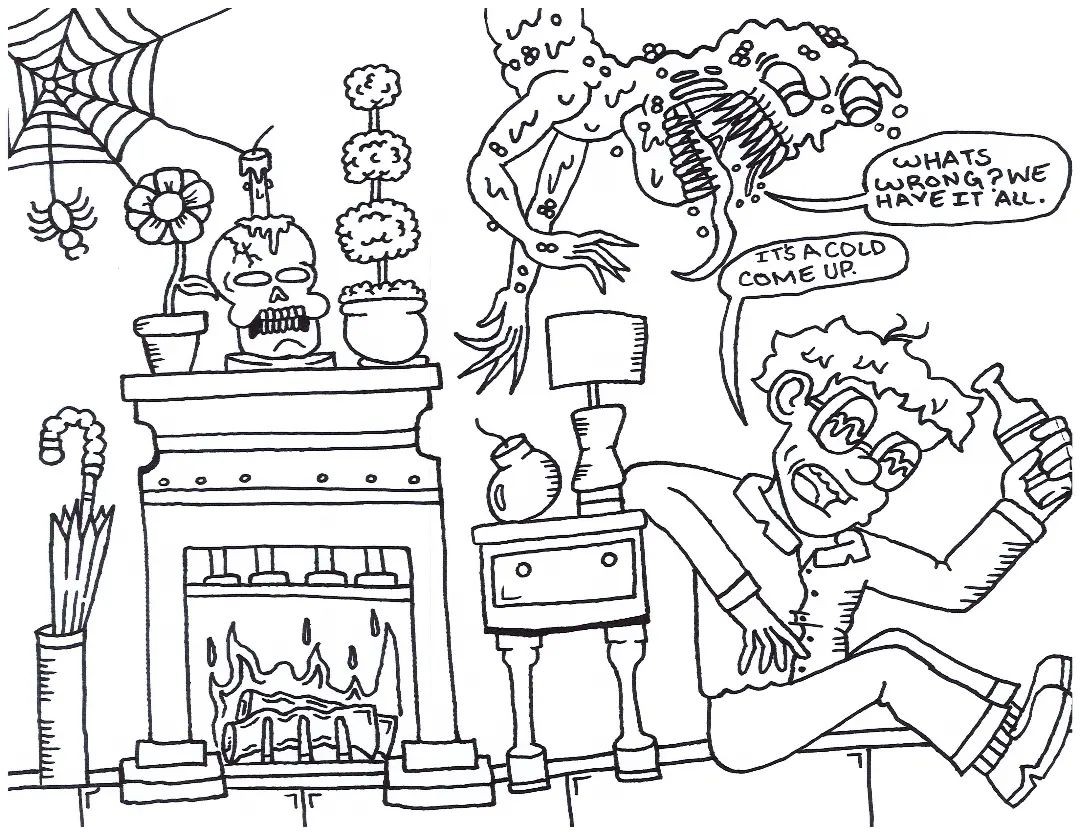 WHATS
WRONG? WE
HAVE IT ALL.
IT'S A COLD
COME UP.